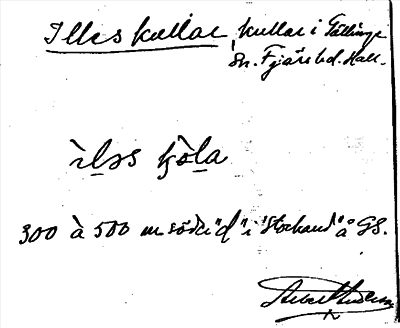 Illeskullar, kullar i Gällinge
Sn. Fjäre hd. Hall.
ìlǝs kò̀la
300 à 500 m söder "d" i "Stockand" å GS.